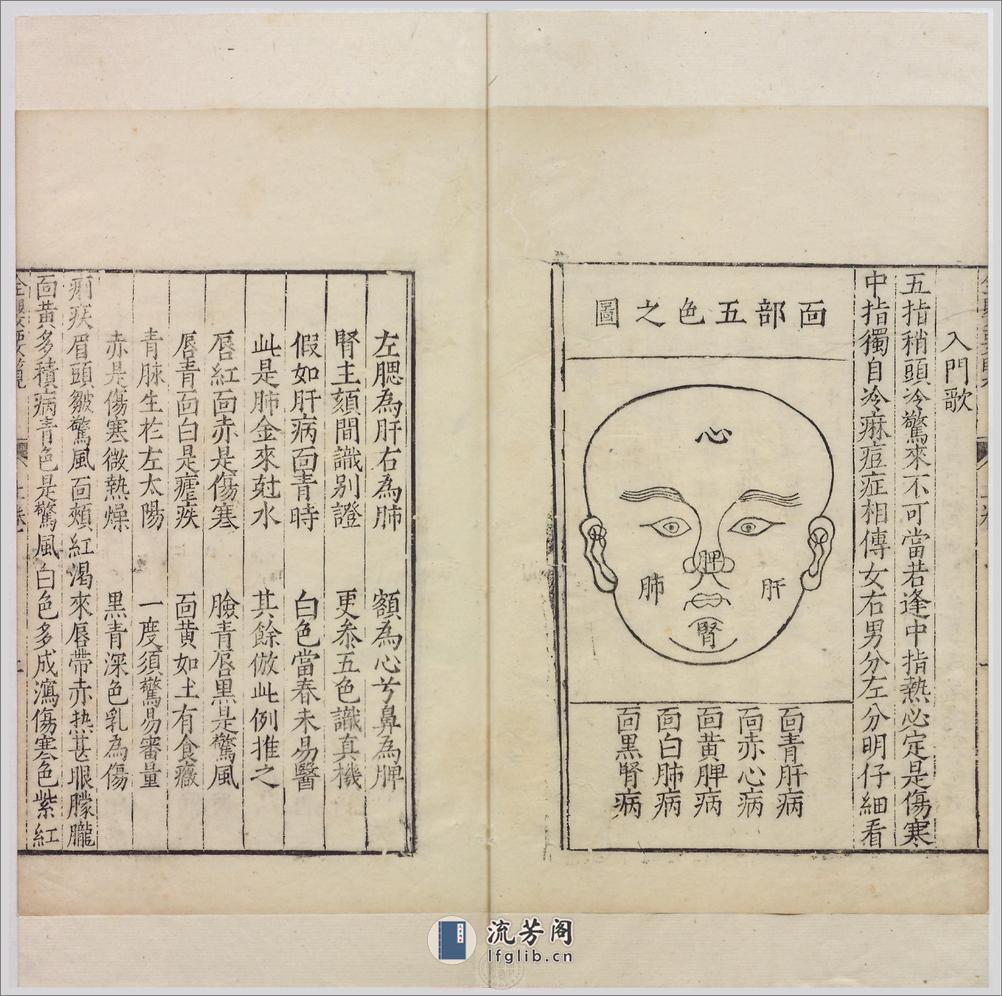 入門歌
五指稍頭冷驚來不可當若逢中指熱必定是傷寒
中指獨自冷痳痘症相傳女右男分左分明仔細看
面部五色之圖
心
肺
脾
肝
腎
面青肝病
面赤心病
面黃脾病
面白肺病
面黒腎病
左腮為肝右為肺 額為心兮鼻為脾
腎主頦間識別證 更叅五色識真機
假如肝病面青時 白色當春未易醫
此是肺金來尅水 其餘倣此例推之
唇紅面赤是傷寒 臉青唇黒是驚風
唇青面白是瘧疾 面黄如土有食癥
青脉生於左太陽 一度須驚易審量
赤是傷寒微熱燥 黒青深色乳為傷
痢疾眉頭皺驚風面頰紅渴來唇帶赤热甚眼朦朧
面黄多積病青色是驚風白色多成瀉傷寒色紫紅
流芳阁
lfglib.cn